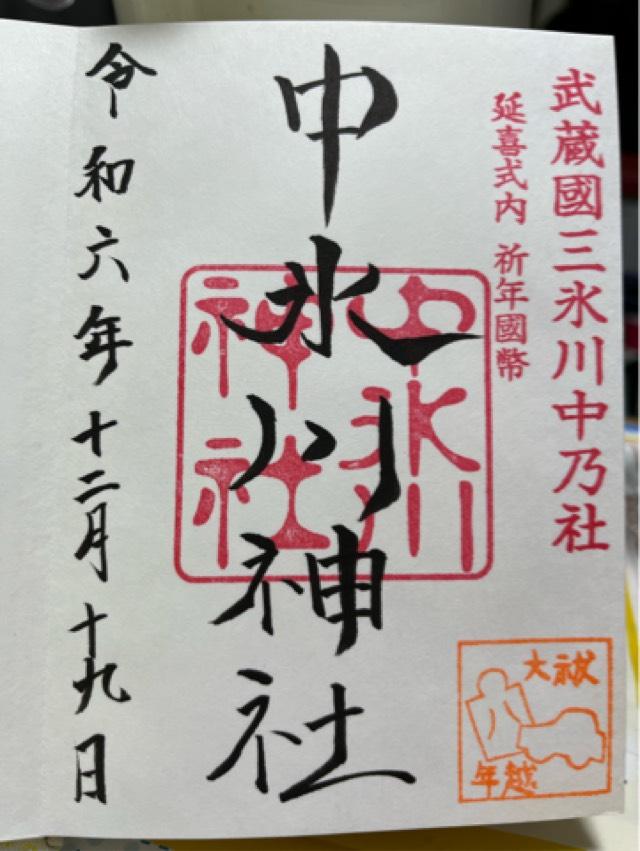 武蔵國三氷川中乃社
延喜式内 祈年國幣
中氷川神社
中氷川
神社
令和六年十二月十九日
大祓
年越